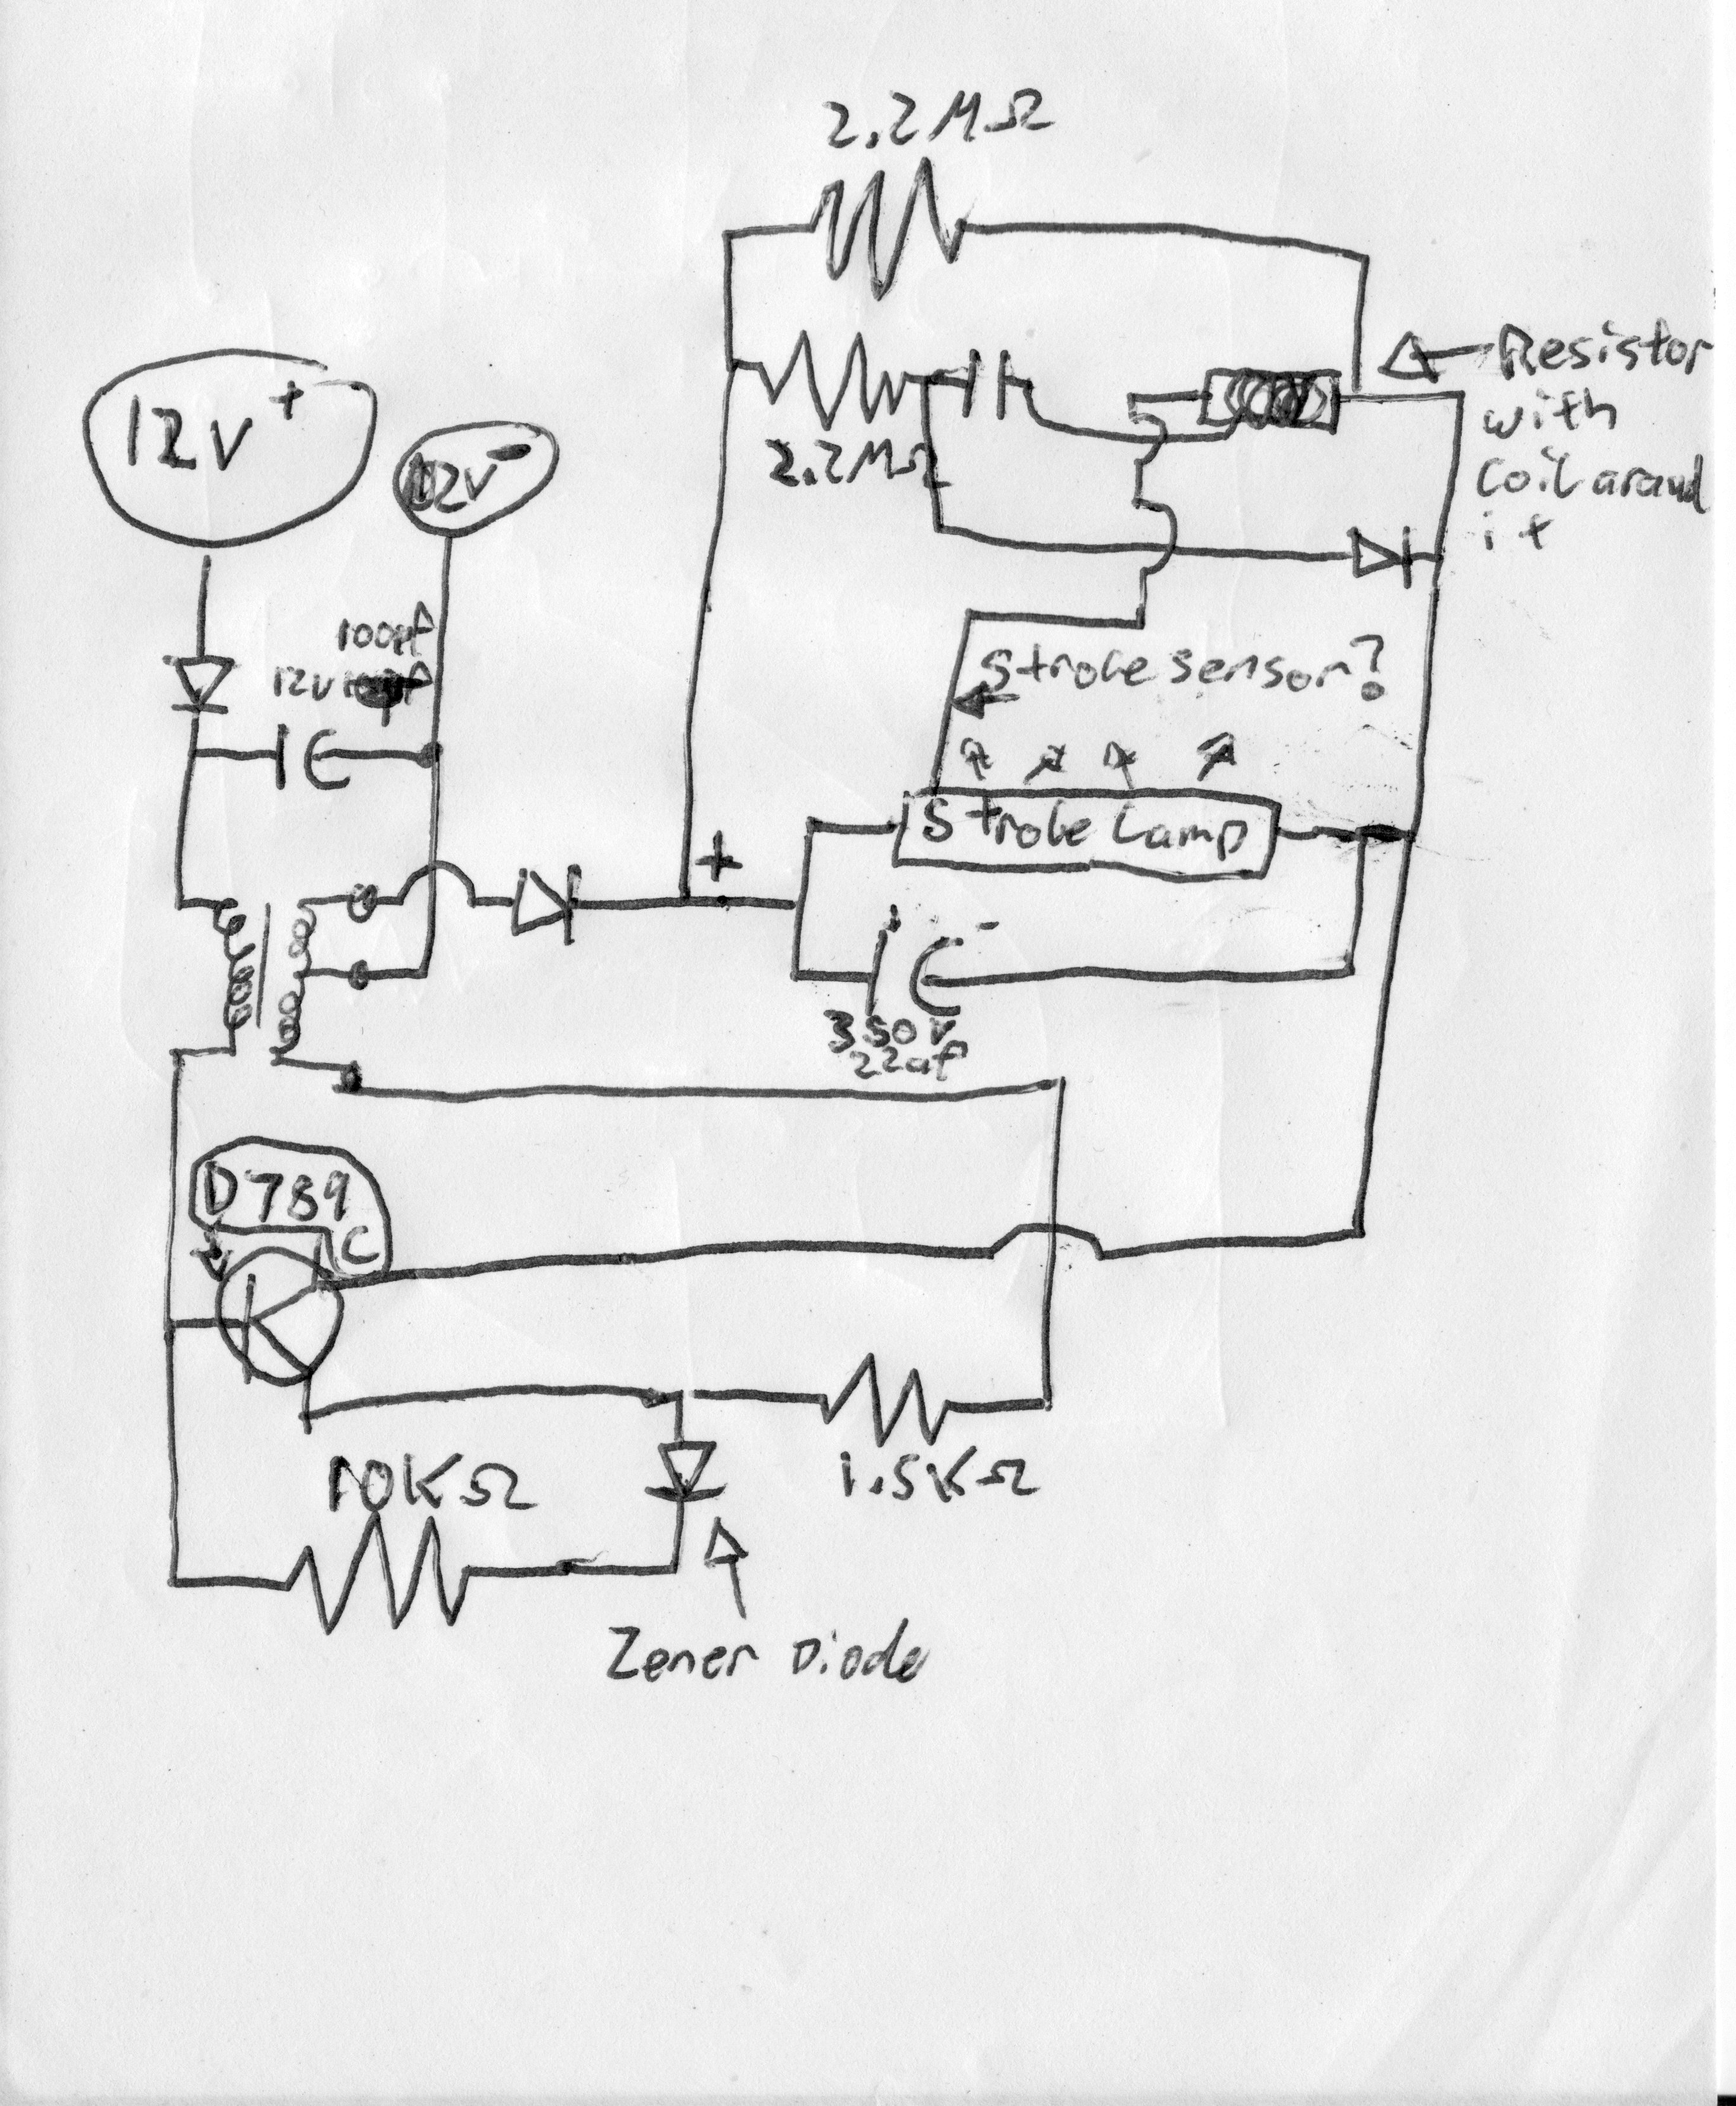 2.2MΩ
Resistor
with
Coil around
it
12V +
12V -
2.2MΩ
100µf
12V
Strobe sensor?
Strobe Lamp
+
+ -
350V
22uf
D789
C
10KΩ
1.5KΩ
Zener Diode